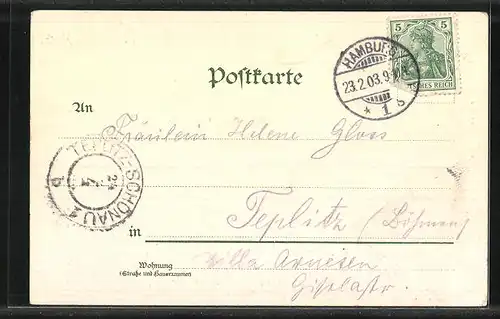 5 5
DEUTSCHES REICH
HAMBURG
23.2.03.9
* 1 S
Postkarte
An
Fräulein Helene Gloss
TEPLITZ-SCHÖNAU 1
b
in Teplitz (Böhmen)
Wohnung
(Straße und Hausnummer)
Villa Arnesen
Giselastr.